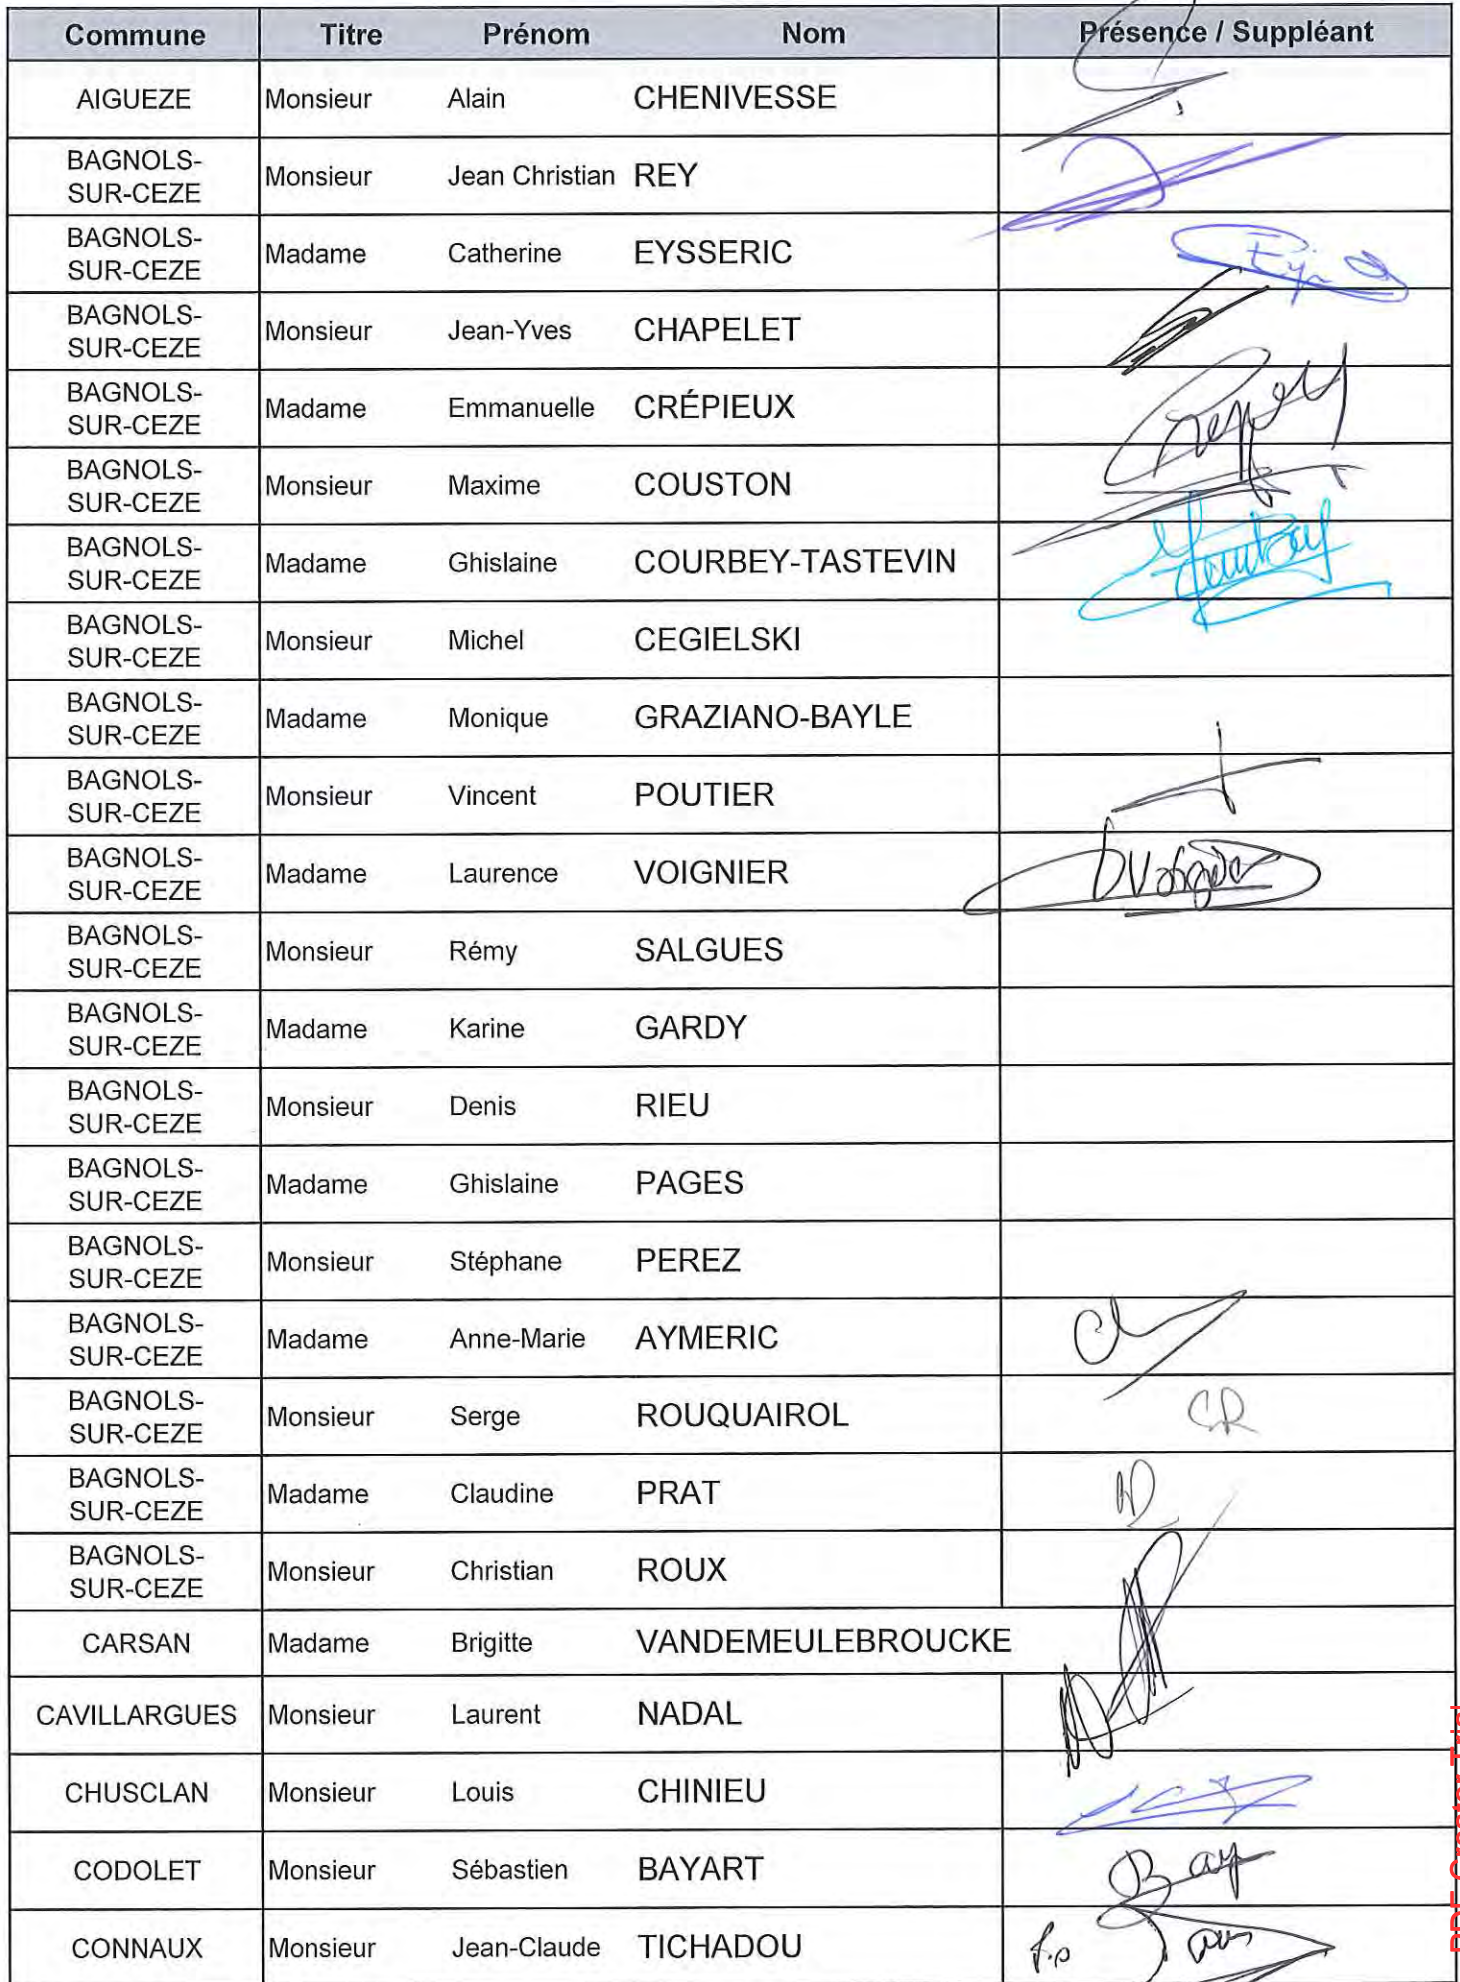 Commune Titre Prénom Nom Présence / Suppléant
AIGUEZE Monsieur Alain CHENIVESSE
BAGNOLS-
SUR-CEZE Monsieur Jean Christian REY
BAGNOLS-
SUR-CEZE Madame Catherine EYSSERIC
BAGNOLS-
SUR-CEZE Monsieur Jean-Yves CHAPELET
BAGNOLS-
SUR-CEZE Madame Emmanuelle CRÉPIEUX
BAGNOLS-
SUR-CEZE Monsieur Maxime COUSTON
BAGNOLS-
SUR-CEZE Madame Ghislaine COURBEY-TASTEVIN
BAGNOLS-
SUR-CEZE Monsieur Michel CEGIELSKI
BAGNOLS-
SUR-CEZE Madame Monique GRAZIANO-BAYLE
BAGNOLS-
SUR-CEZE Monsieur Vincent POUTIER
BAGNOLS-
SUR-CEZE Madame Laurence VOIGNIER
BAGNOLS-
SUR-CEZE Monsieur Rémy SALGUES
BAGNOLS-
SUR-CEZE Madame Karine GARDY
BAGNOLS-
SUR-CEZE Monsieur Denis RIEU
BAGNOLS-
SUR-CEZE Madame Ghislaine PAGES
BAGNOLS-
SUR-CEZE Monsieur Stéphane PEREZ
BAGNOLS-
SUR-CEZE Madame Anne-Marie AYMERIC
BAGNOLS-
SUR-CEZE Monsieur Serge ROUQUAIROL
BAGNOLS-
SUR-CEZE Madame Claudine PRAT
BAGNOLS-
SUR-CEZE Monsieur Christian ROUX
CARSAN Madame Brigitte VANDEMEULEBROUCKE
CAVILLARGUES Monsieur Laurent NADAL
CHUSCLAN Monsieur Louis CHINIEU
CODOLET Monsieur Sébastien BAYART Bay
CONNAUX Monsieur Jean-Claude TICHADOU